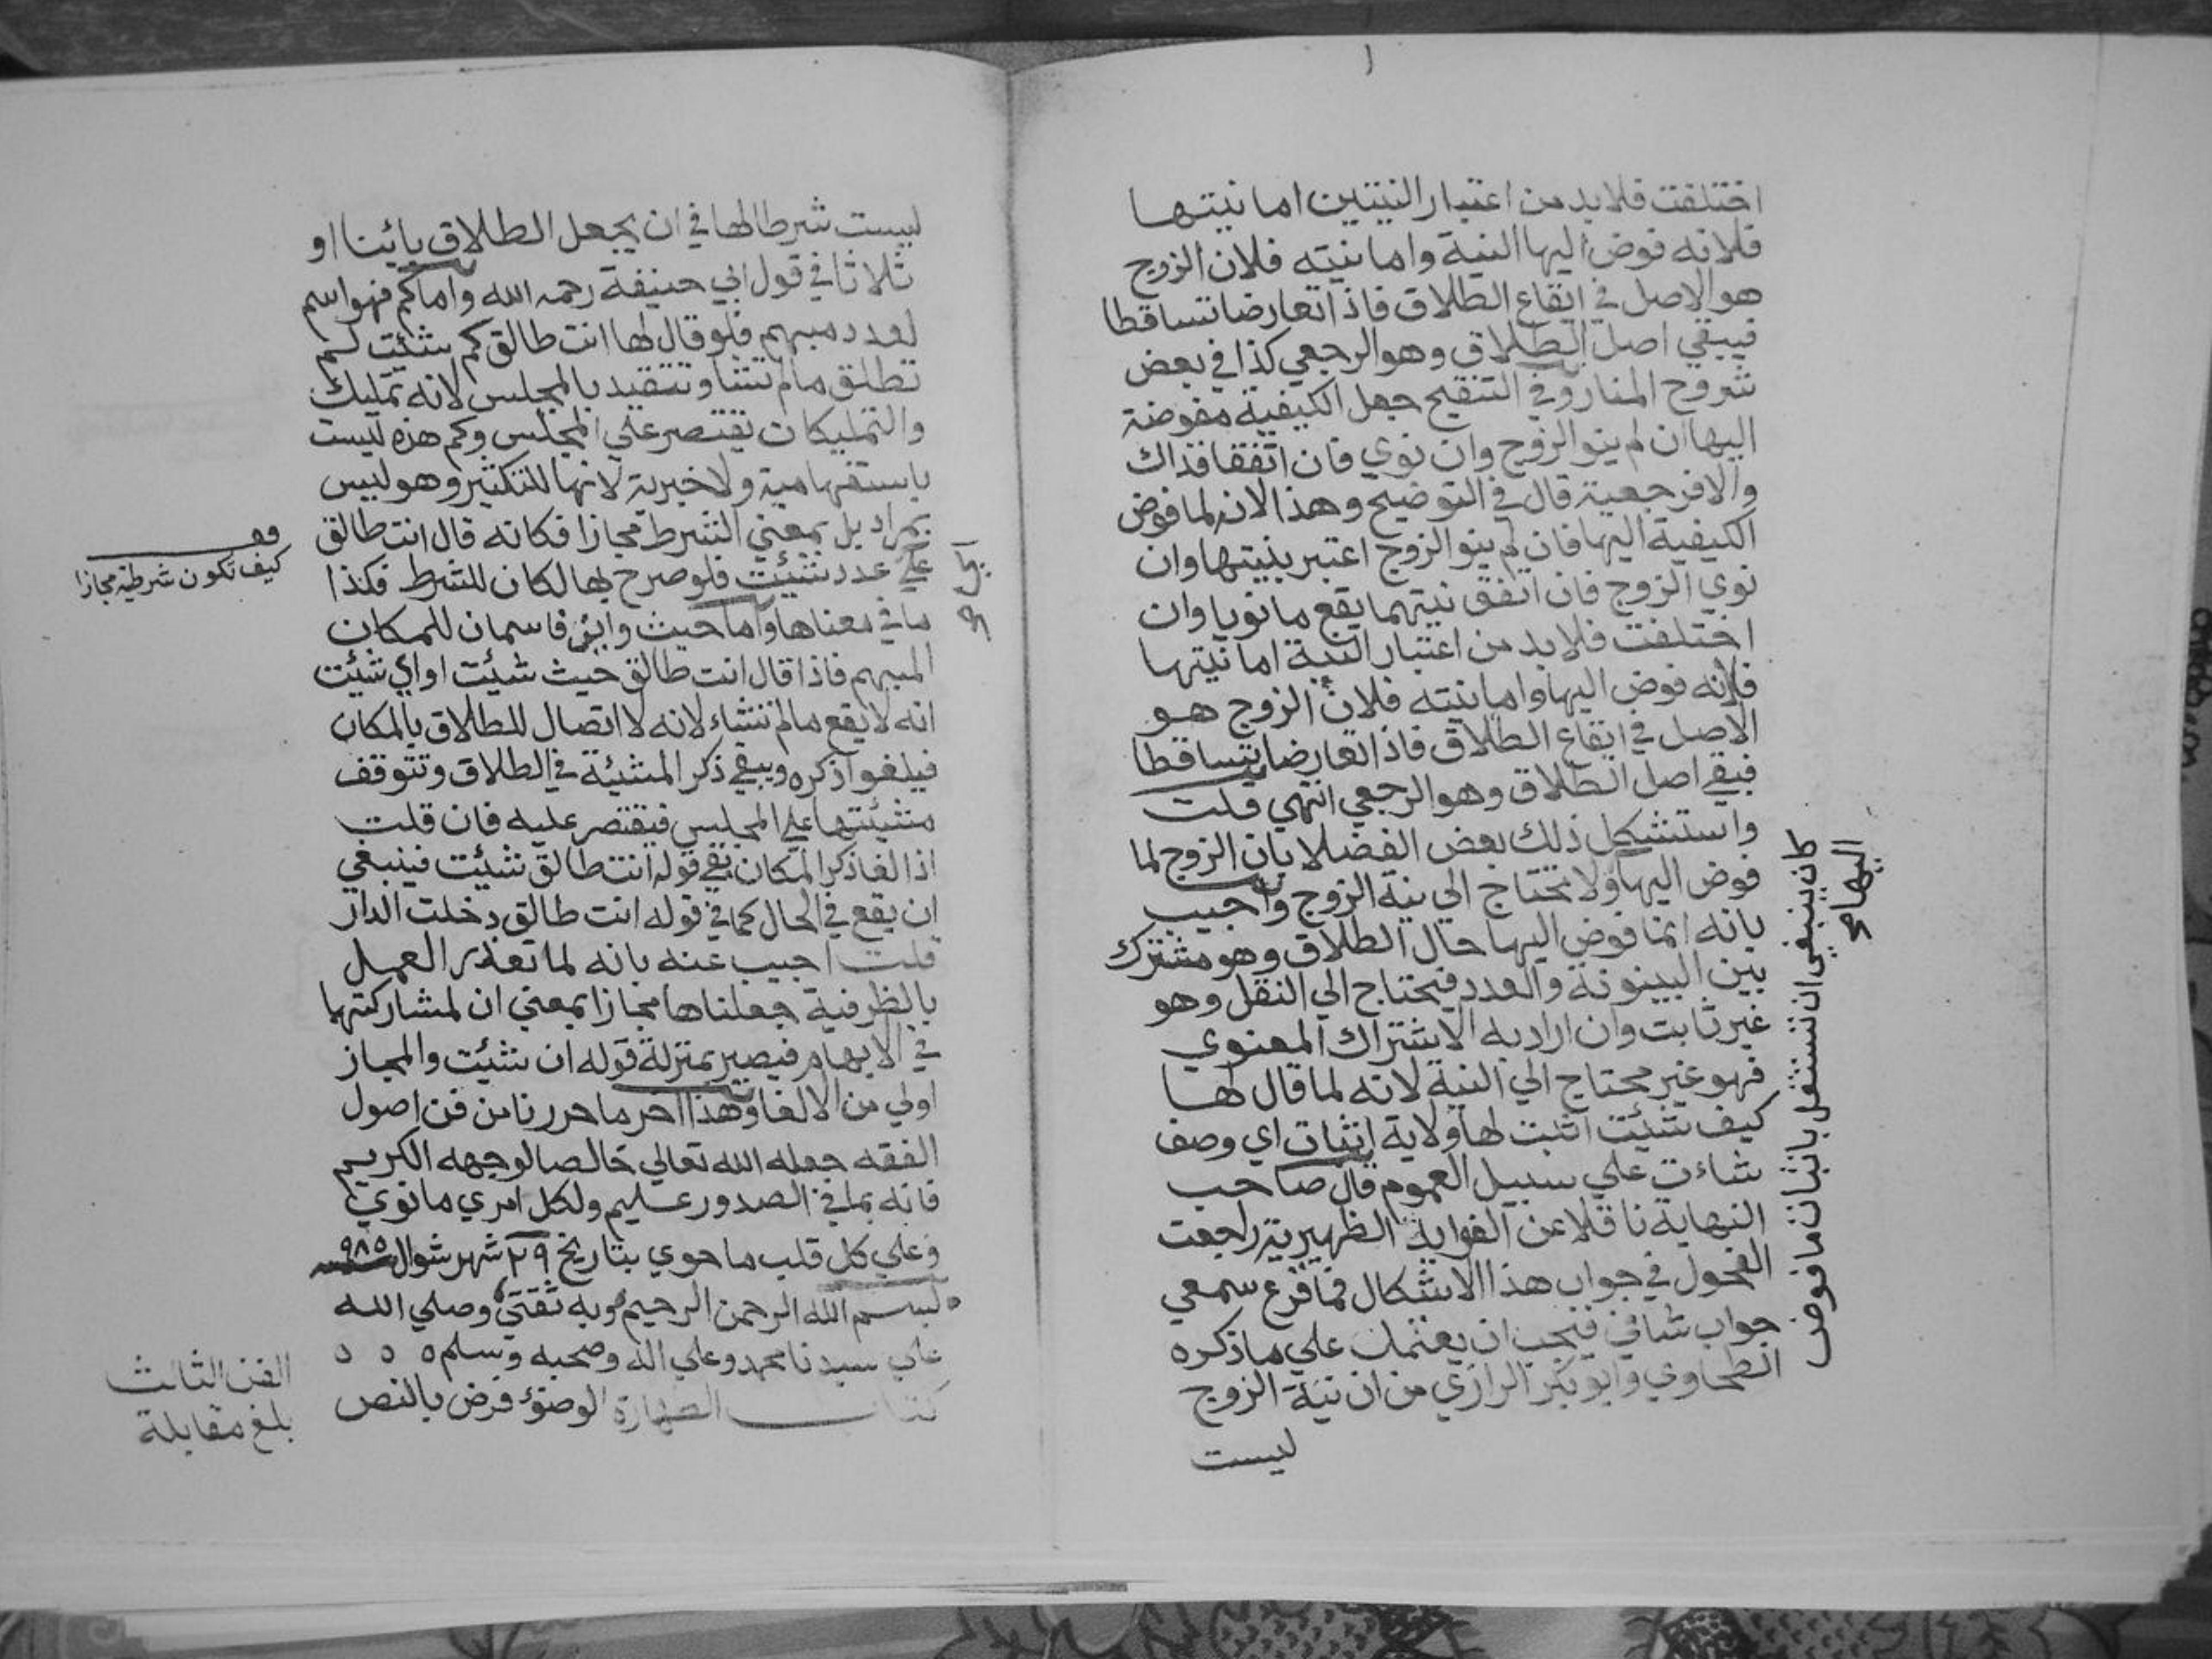 اختلفت فلا بد من اعتبار النيتين اما نيتها
فلانه فوض اليها النية واما نيته فلان الزوج
هو الاصل في ايقاع الطلاق فاذا تعارضا تساقطا
فيبقي اصل الطلاق وهو الرجعي كذا في بعض
شروح المنار وفي التنقيح جعل الكيفية مفوضة
اليها ان لم ينو الزوج وان نوي فان اتفقا فذاك
والا فرجعية قال في التوضيح وهذا لانه لما فوض
الكيفية اليها فان لم ينو الزوج اعتبر بنيتها وان
نوي الزوج فان اتفق نيتهما يقع ما نويا وان
اختلفت فلا بد من اعتبار النية اما نيتها
فلانه فوض اليها واما نيته فلان الزوج هو
الاصل في ايقاع الطلاق فاذا تعارضا تساقطا
فبقي اصل الطلاق وهو الرجعي انتهي قلت
واستشكل ذلك بعض الفضلا بان الزوج لما
فوض اليها ولا تحتاج الي نية الزوج واجيب
بانه انما فوض اليها حال الطلاق وهو مشترك
بين البينونة والعدد فيحتاج الي النقل وهو
غير ثابت وان اراد به الاشتراك المعنوي
فهو غير محتاج الي النية لانه لما قال لها
كيف شئت اثبت لها ولاية اثبات اي وصف
شاءت علي سبيل العموم قال صاحب
النهاية ناقلا عن الفوايد الظهيرية راجعت
الفحول في جواب هذا الاشكال فما قرع سمعي
جواب شافي فيجب ان يعتمد علي ما ذكره
الطحاوي وابو بكر الرازي من ان نية الزوج
ليست
كان ينبغي ان تستقل باثبات ما فوض
اليها صح
ليست شرطا لها في ان يجعل الطلاق بائنا او
ثلاثا في قول ابي حنيفة رحمه الله واما كم فهو اسم
لعدد مبهم فلو قال لها انت طالق كم شئت لم
تطلق ما لم تشا وتتقيد بالمجلس لانه تمليك
والتمليكات تقتصر علي المجلس وكم هذه ليست
باستفهامية ولا خبرية لانها للتكثير وهو ليس
بمراد بل بمعني الشرط مجازا فكانه قال انت طالق
علي عدد شئت فلو صرح بها لكان للشرط فكذا
ما في معناها واما حيث واين فاسمان للمكان
المبهم فاذا قال انت طالق حيث شئت او اي شئت
انه لا يقع ما لم تشاء لانه لا اتصال للطلاق بالمكان
فيلغوا ذكره ويبقي ذكر المشيئة في الطلاق وتتوقف
مشيئتها علي المجلس فيقتصر عليه فان قلت
اذا لغا ذكر المكان بقي قوله انت طالق شئت فينبغي
ان يقع في الحال كما في قوله انت طالق دخلت الدار
قلت اجيب عنه بانه لما تعذر العمل
بالظرفية جعلناها مجازا بمعني ان لمشاركتها
في الابهام فيصير بمنزلة قوله ان شئت والمجاز
اولي من الالغا وهذا اخر ما حررنا من فن اصول
الفقه جعله الله تعالي خالصا لوجهه الكريم
فانه بما في الصدور عليم ولكل امري ما نوي
وعلي كل قلب ما حوي بتاريخ ٢٩ شهر شوال سنة ٩٨٥
بسم الله الرحمن الرحيم وبه ثقتي وصلي الله
علي سيدنا محمد وعلي اله وصحبه وسلم ٥ ٥ ٥
كتاب الطهارة الوضوء فرض بالنص
كيف تكون شرطية مجازا
الفن الثالث
بلغ مقابلة